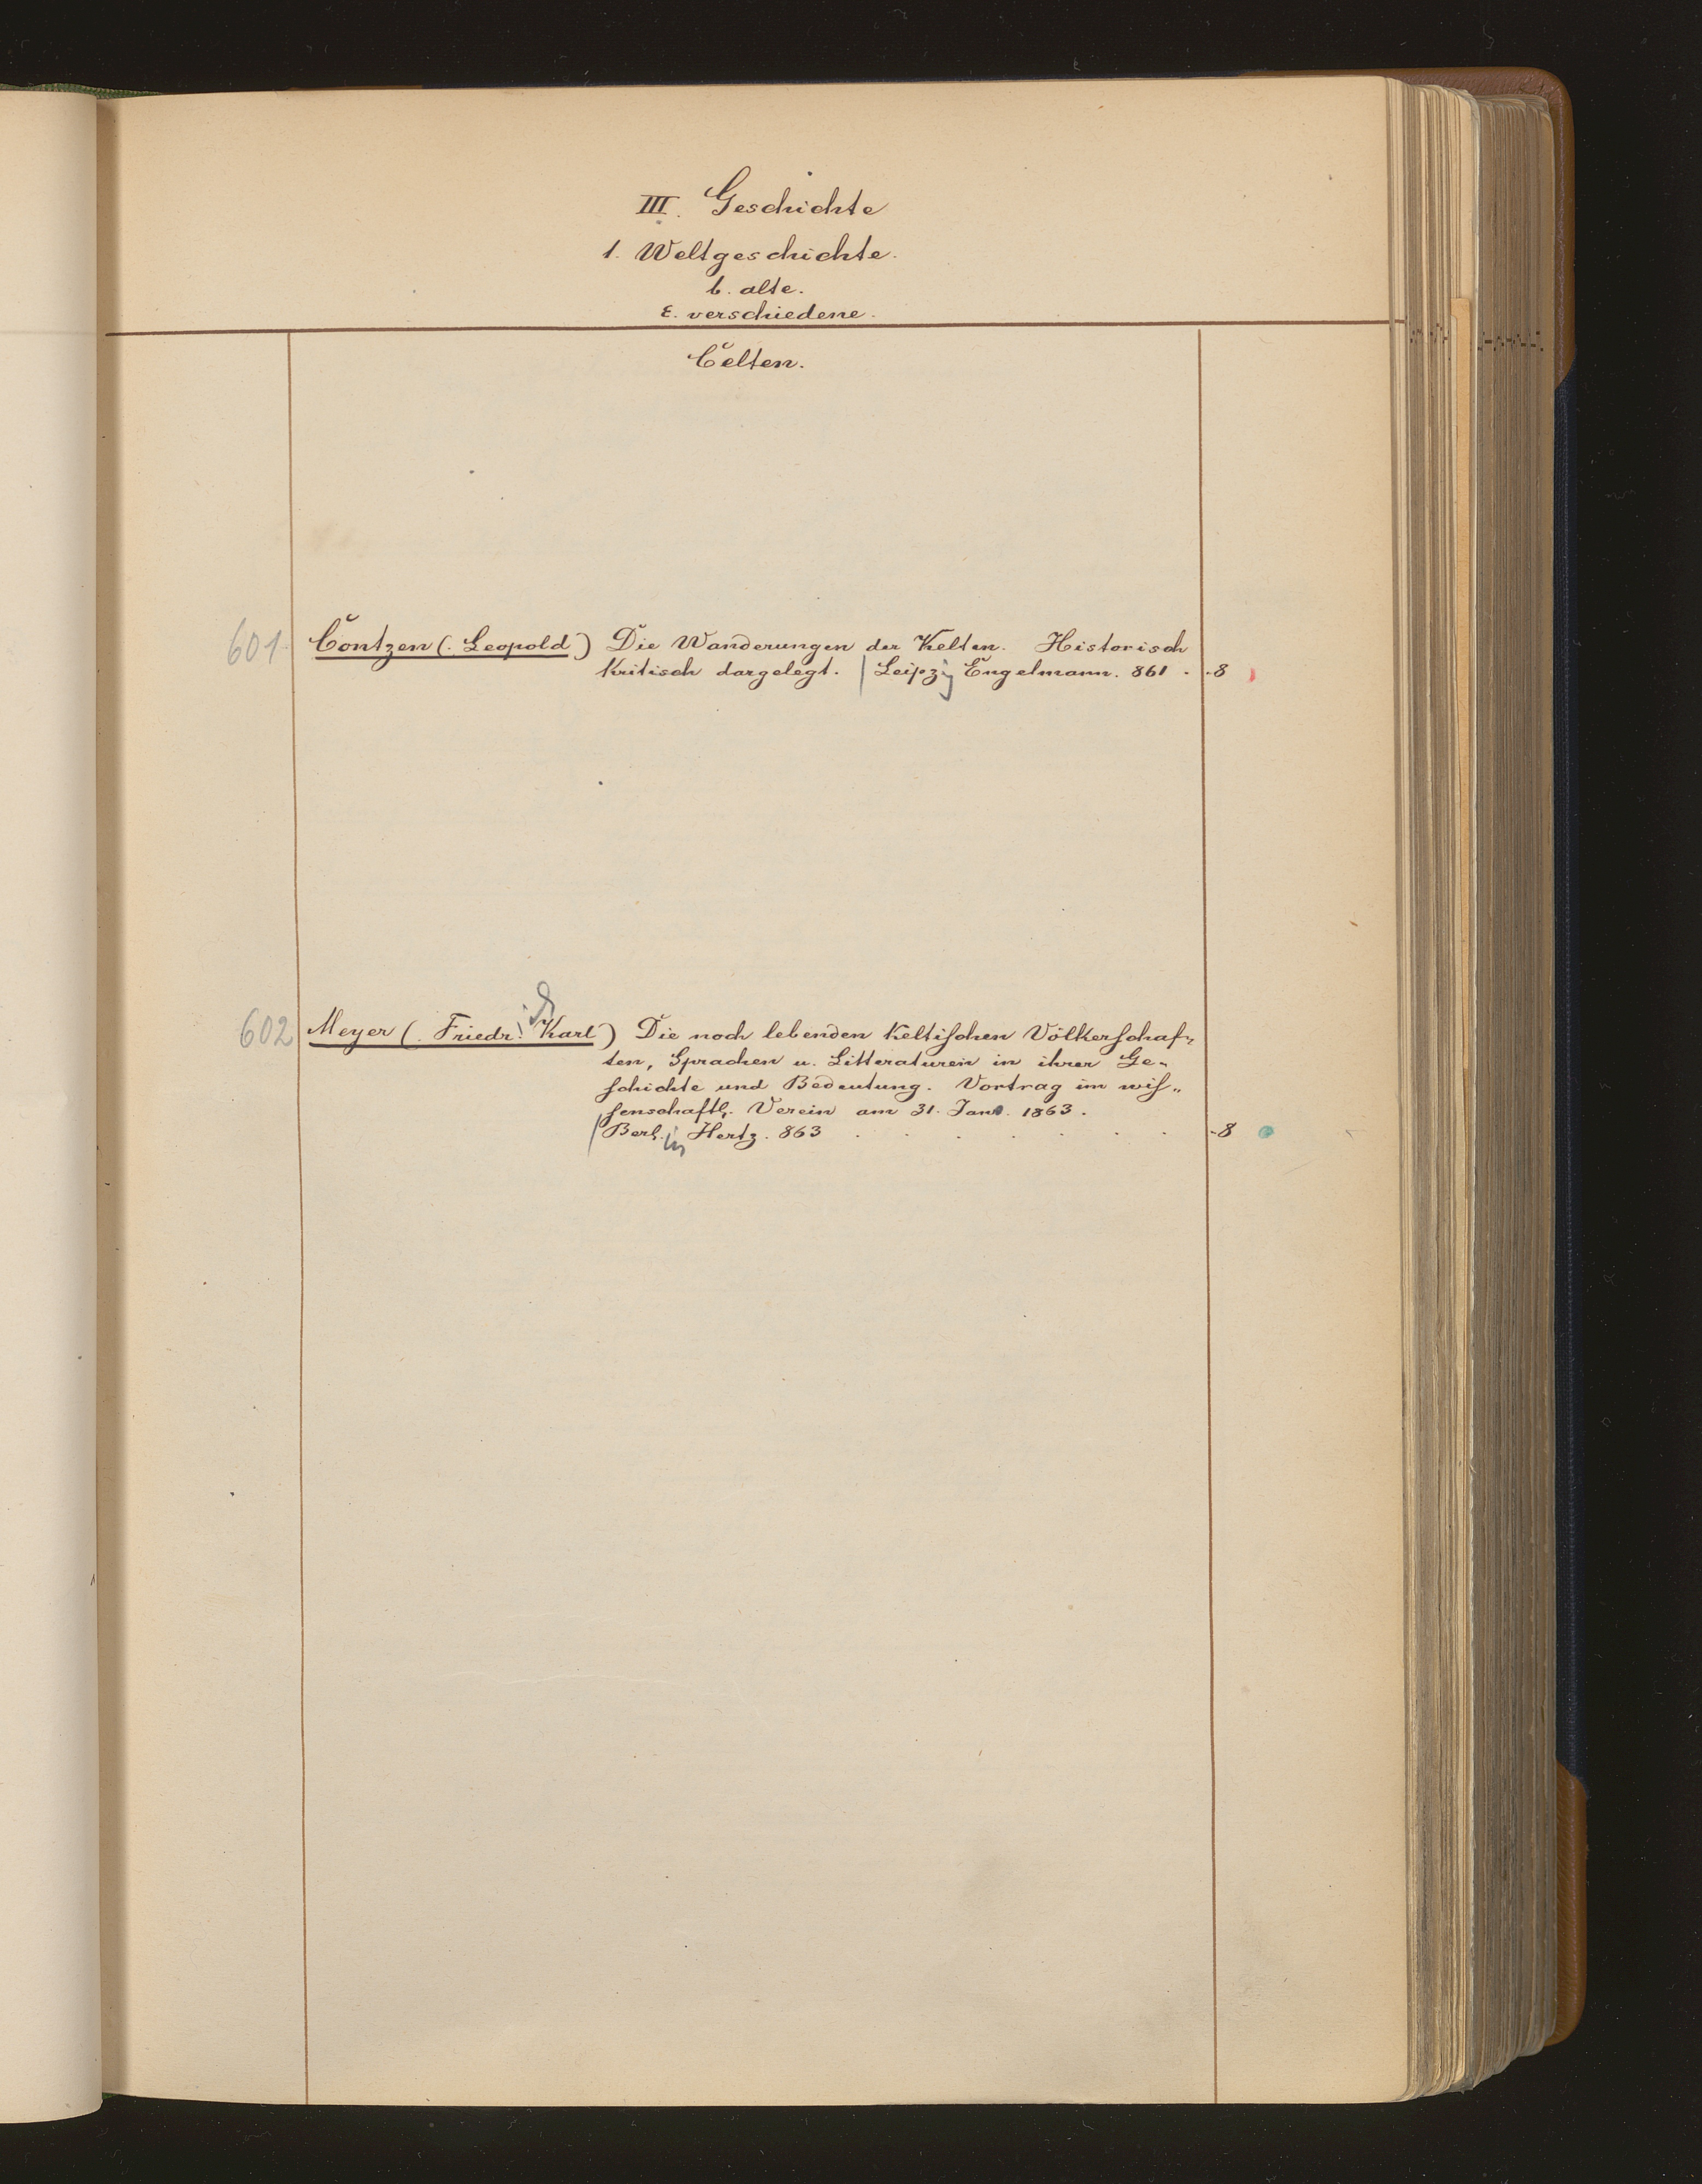 III. Geschichte
1. Weltgeschichte.
b. alte.
ε. verschiedene.
Celten.
601. Contzen (. Leopold) Die Wanderungen der Kelten. Historisch
kritisch dargelegt. | Leipzig Engelmann. 861 . . 8
602 Meyer (. Friedr. Karl) Die noch lebenden keltiſchen Völkerſchaf-
ten, Sprachen u. Litteraturen in ihrer Ge-
ſchichte und Bedeutung. Vortrag im wiſ-
ſenschaftl. Verein am 31. Jan. 1863.
| Berlin Hertz. 863 . . . . . . . . 8